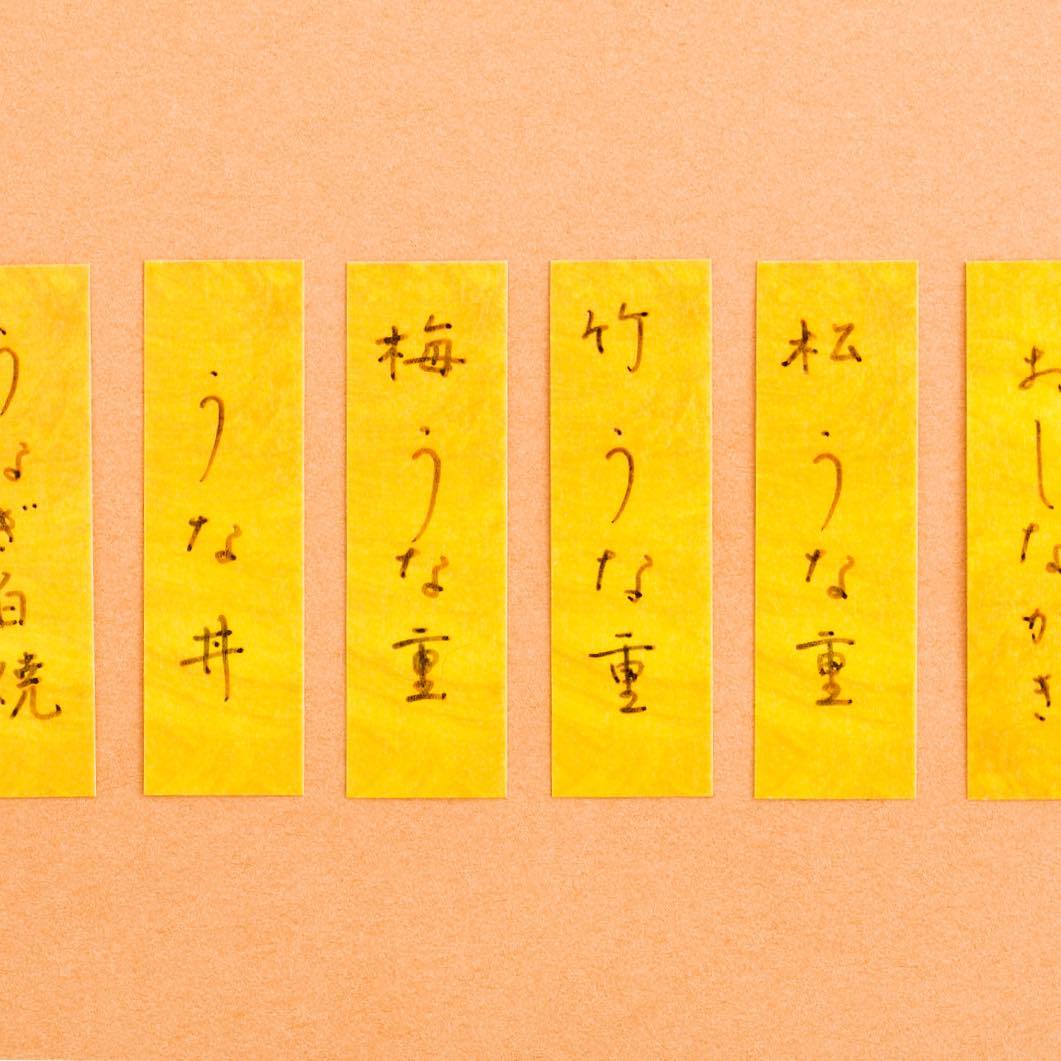 おしながき
松うな重
竹うな重
梅うな重
うな丼
うなぎ白焼